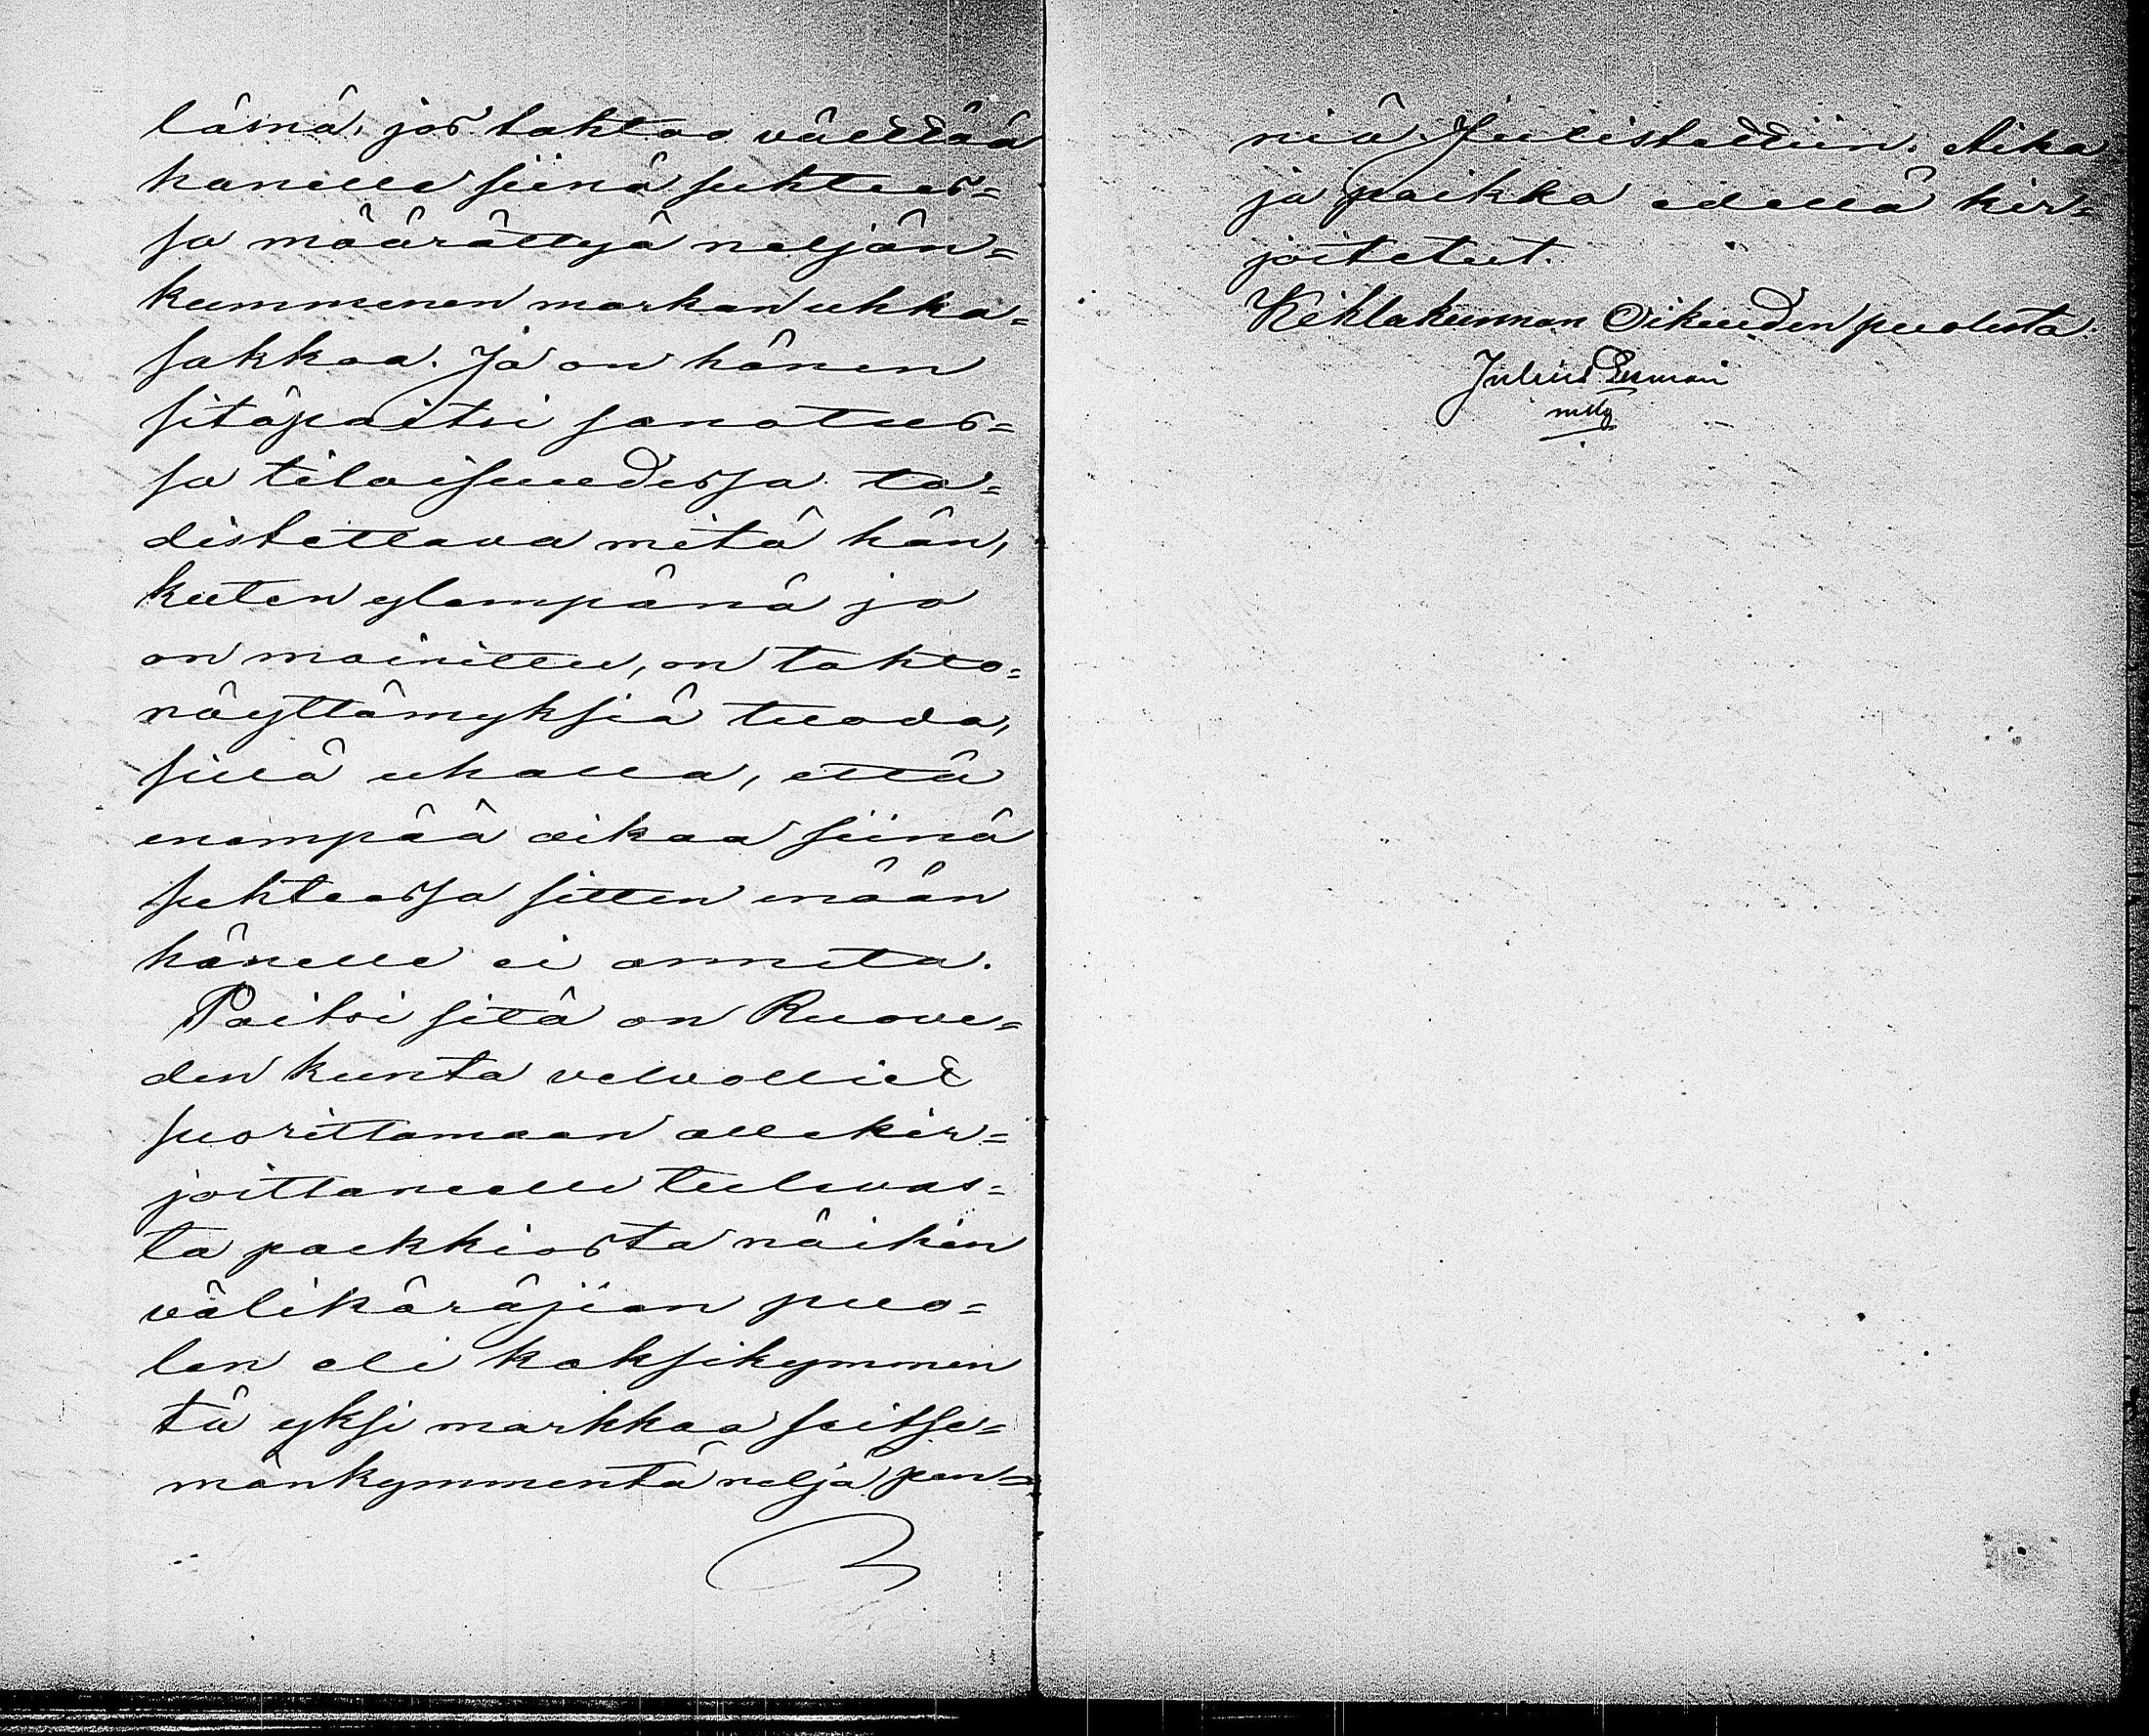 läsnä, jos tahtoo välttää
hänelle siinä suhtees=
sa määrättyä neljän=
kummenen markan uhka=
sakkoa. Ja on hänen
sitäpaitsi sanotus=
sa tilaisuudessa to=
distettava mitä hän,
kuten ylempänä jo
on mainittu, on tahto=
näyttämyksiä tuoda,
sillä uhalla, että
enempää aikaa siinä
suhteessa sitten enään
hänelle ei anneta.
Paitsi sitä on Ruove=
den kunta velvollied
suorittamaan allekir=
joittaneelle tulevas=
ta palkkiosta näihin
välikäräjiän puo=
len eli kaksikymmen
tä yksi markkaa seitse=
mänkymmentä neljä pen=
niä. Julistettiin. Aika
ja paikka edellä kir=
joitetut.
Kihlakunnan Oikeuden puolesta.
Julius